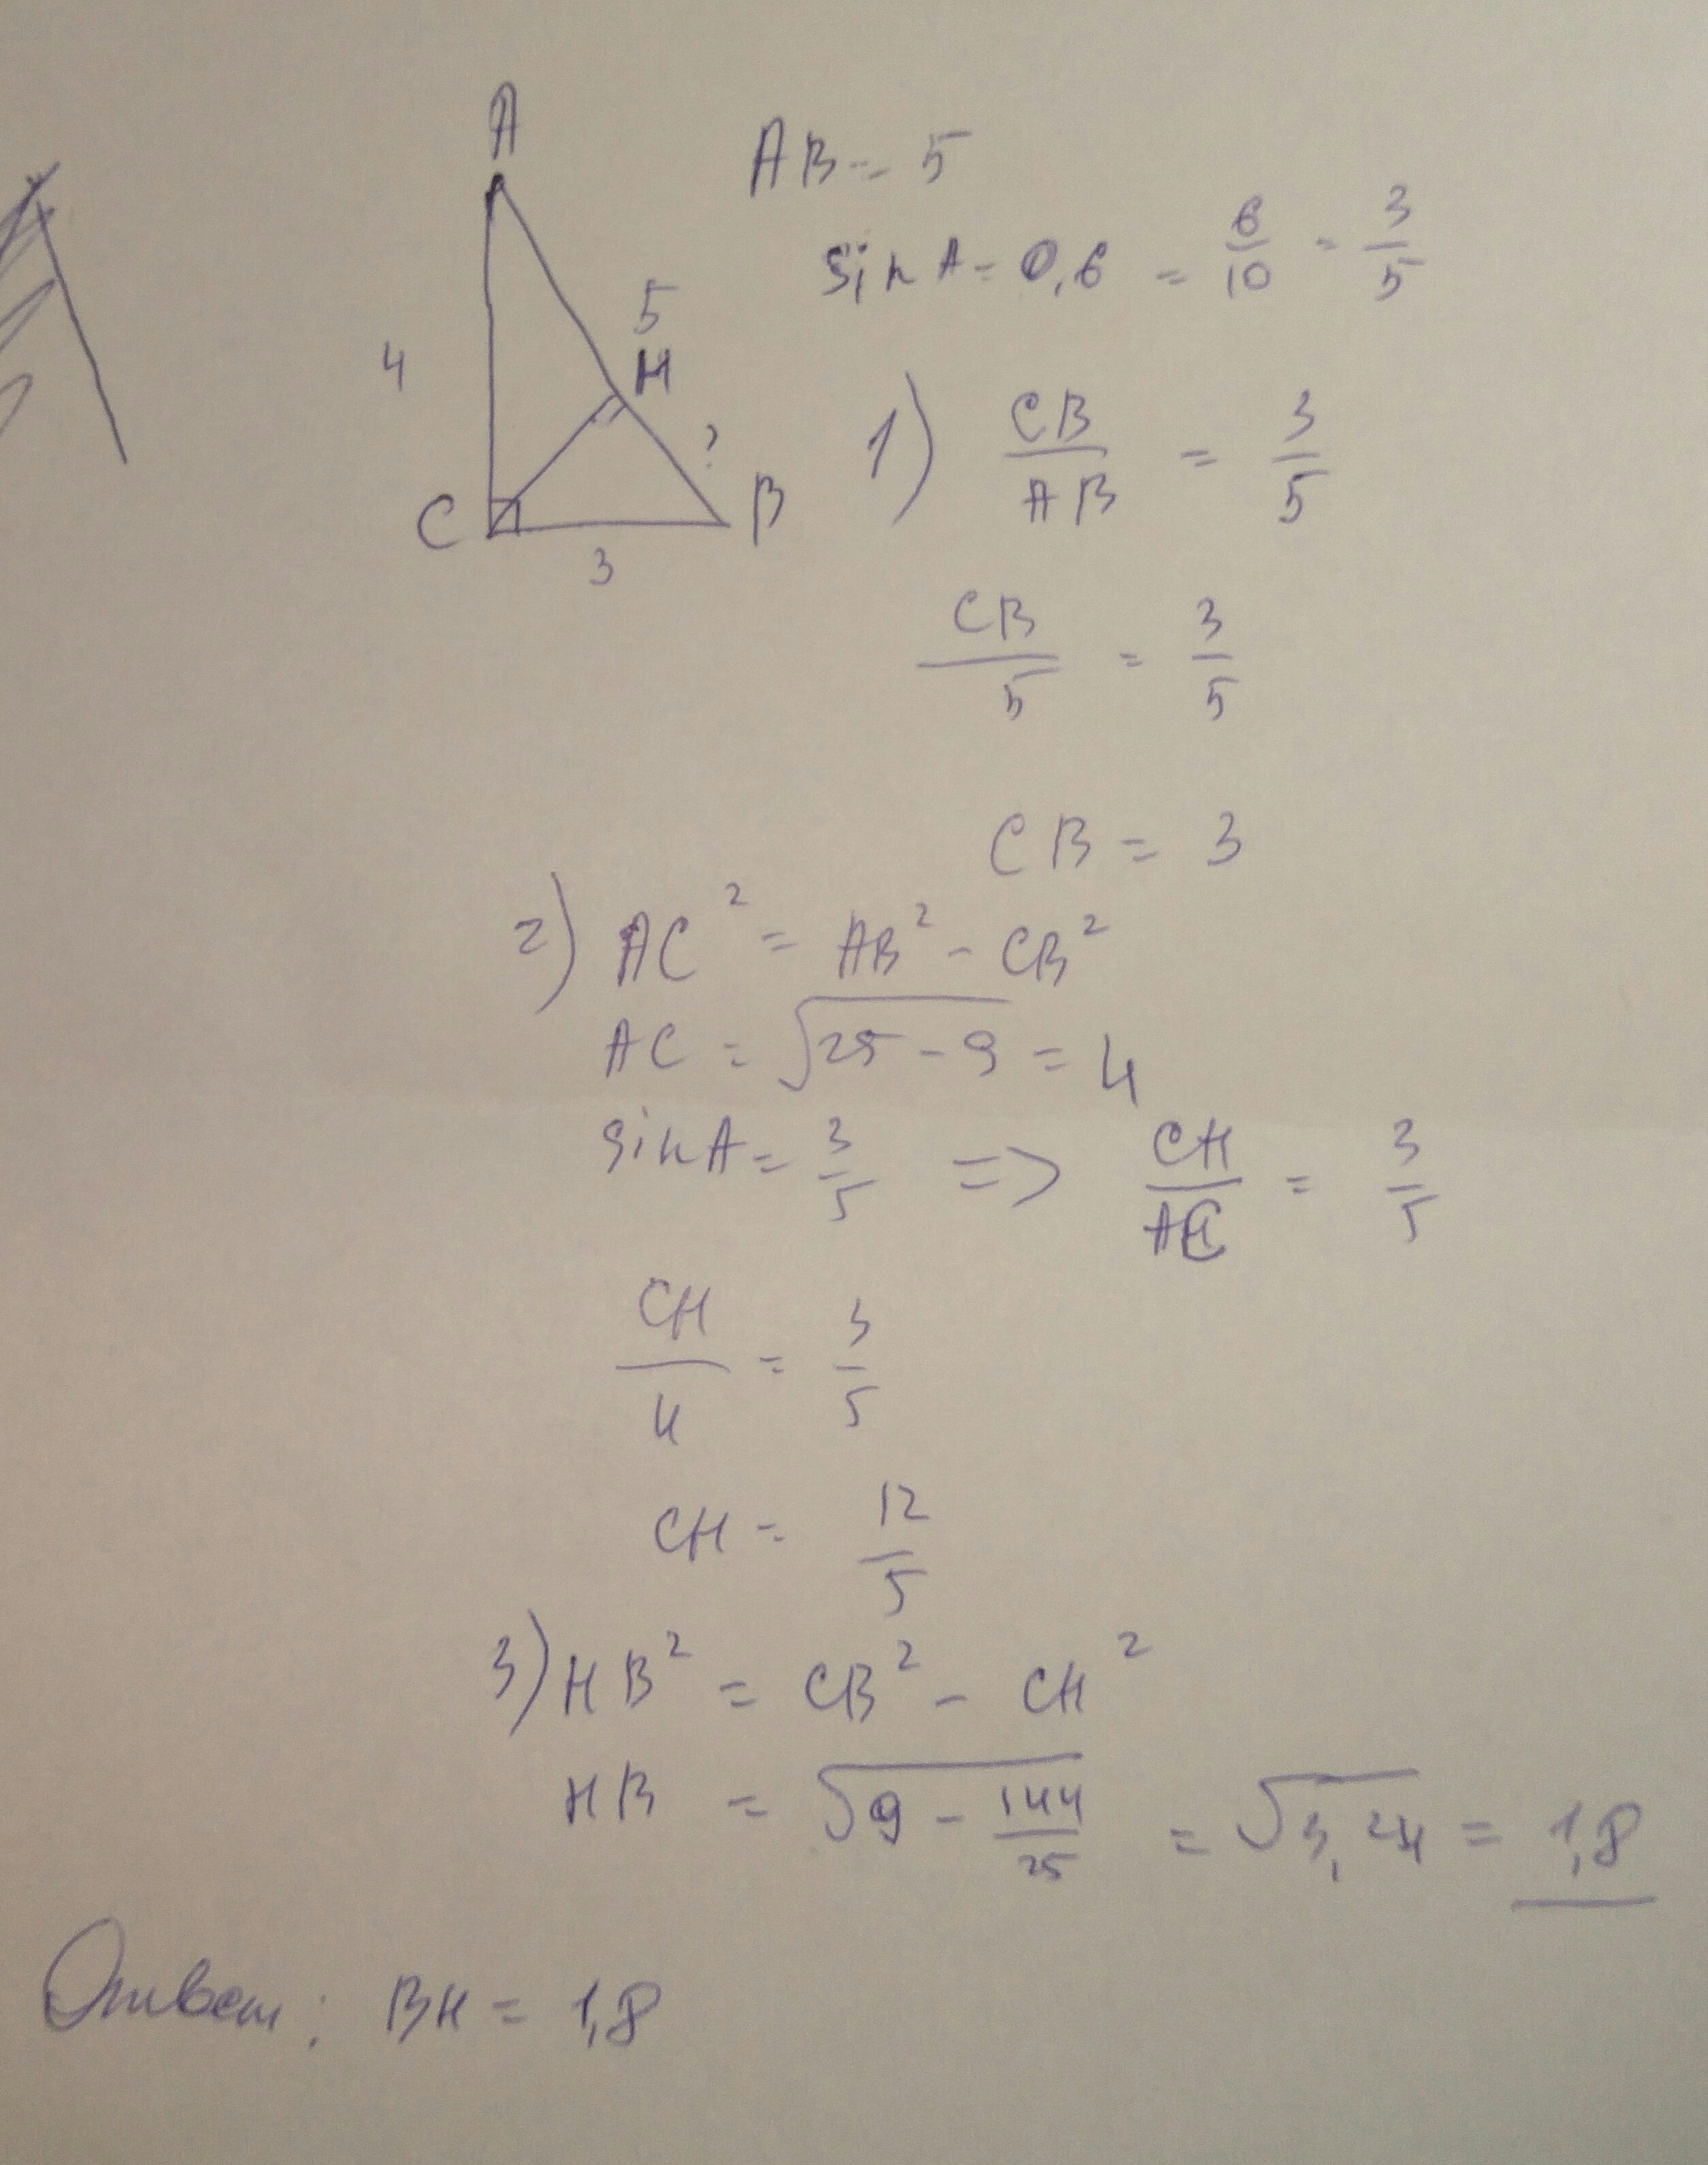 A
AB = 5
sin A = 0,6 = 6/10 = 3/5
5
4
H
?
C
B
3
1) CB/AB = 3/5
CB/5 = 3/5
CB = 3
2) AC² = AB² - CB²
AC = √25 - 9 = 4
sin A = 3/5 => CH/AC = 3/5
CH/4 = 3/5
CH = 12/5
3) HB² = CB² - CH²
HB = √9 - 144/25 = √3,24 = 1,8
Ответ: BH = 1,8